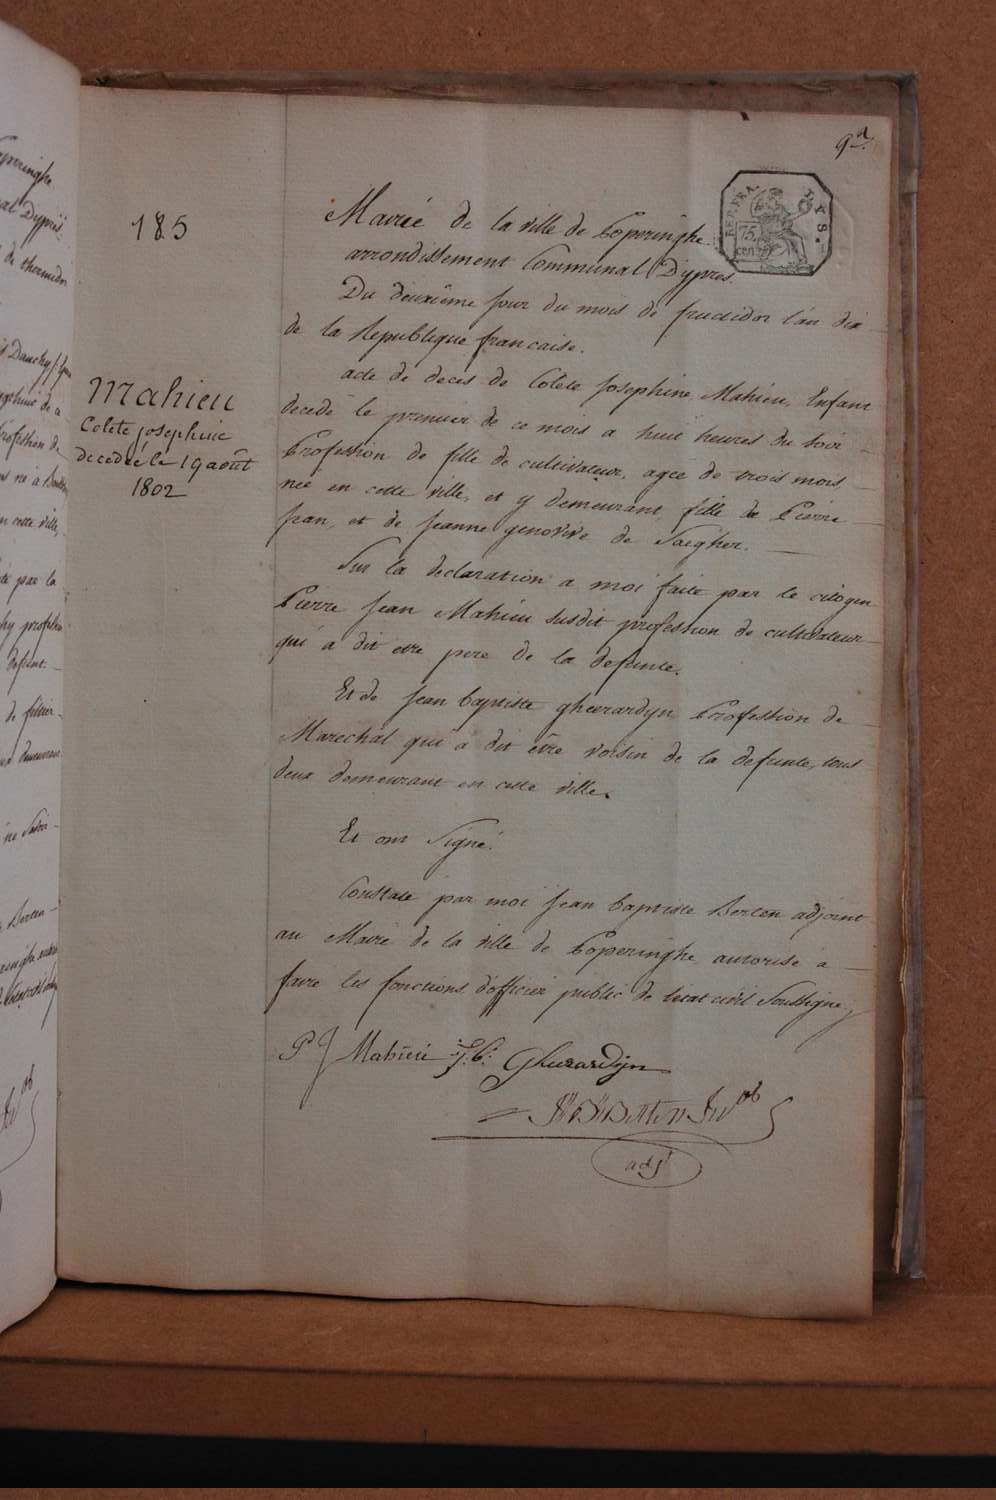 9d.
REP. FRA.
75
cent.
LYS.
185
Mairie de la ville de Poperinghe
arrondissement Communal D'ypres.
Du deuxième jour du mois de fructidor l'an dix
de la Republique francaise.
Mahieu
Colete Josephine
decedée le 19 août
1802
acte de deces de Colete Josephine Mahieu, Enfant
decedé le premier de ce mois a huit heures du soir
Profession de fille de cultivateur, agée de trois mois
née en cette ville, et y demeurant, fille de Pierre
jean, et de jeanne genovive de Saegher.
Sur la declaration a moi faite par le citoyen
Pierre jean Mahieu susdit profession de cultivateur
qui a dit etre pere de la defunte.
Et de jean baptiste gheerardyn Profession de
Marechal qui a dit être voisin de la defunte, tous
deux demeurant en cette ville.
Et ont Signé.
Constaté par moi jean baptiste Berten adjoint
au Maire de la ville de Poperinghe, autorisé a
faire les fonctions d'officier public de l'etat civil Soussigné
P J Mahieu J: b: Gheerardyn
adjt